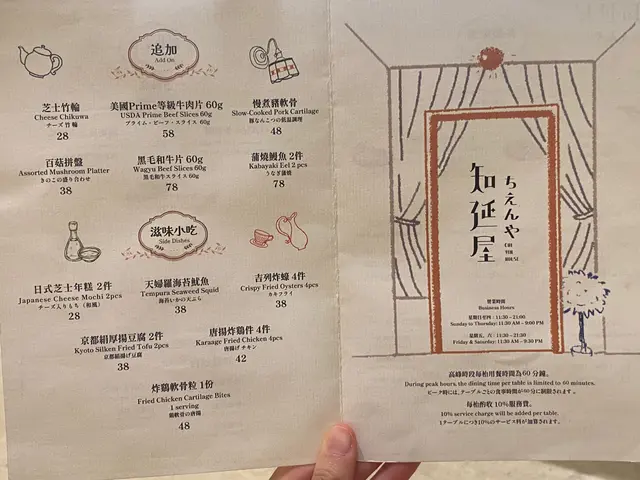 追加
Add On
芝士竹輪
Cheese Chikuwa
チーズ竹輪
28
美國Prime等級牛肉片 60g
USDA Prime Beef Slices 60g
プライム・ビーフ・スライス 60g
58
慢煮豬軟骨
Slow-Cooked Pork Cartilage
豚なんこつの低温調理
48
百菇拼盤
Assorted Mushroom Platter
きのこの盛り合わせ
38
黑毛和牛片 60g
Wagyu Beef Slices 60g
黒毛和牛スライス 60g
78
蒲燒鰻魚 2件
Kabayaki Eel 2 pcs
うなぎ蒲焼
78
滋味小吃
Side Dishes
日式芝士年糕 2件
Japanese Cheese Mochi 2pcs
チーズ入りもち（和風）
28
天婦羅海苔魷魚
Tempura Seaweed Squid
海苔いかの天ぷら
38
吉列炸蠔 4件
Crispy Fried Oysters 4pcs
カキフライ
38
京都絹厚揚豆腐 2件
Kyoto Silken Fried Tofu 2pcs
京都絹揚げ豆腐
38
唐揚炸鷄件 4件
Karaage Fried Chicken 4pcs
唐揚げチキン
42
炸鷄軟骨粒 1份
Fried Chicken Cartilage Bites
1 serving
鶏軟骨の唐揚
48
知延屋
ちえんや
CHI
YIN
HOUSE
營業時間
Business Hours
星期日至四 : 11:30 - 21:00
Sunday to Thursday: 11:30 AM - 9:00 PM
星期五、六 : 11:30 - 21:30
Friday & Saturday: 11:30 AM - 9:30 PM
高峰時段每枱用餐時間為 60 分鐘。
During peak hours, the dining time per table is limited to 60 minutes.
ピーク時には、テーブルごとの食事時間が60分に制限されます。
每枱酌收 10%服務費。
10% service charge will be added per table.
1テーブルにつき10%のサービス料が加算されます。